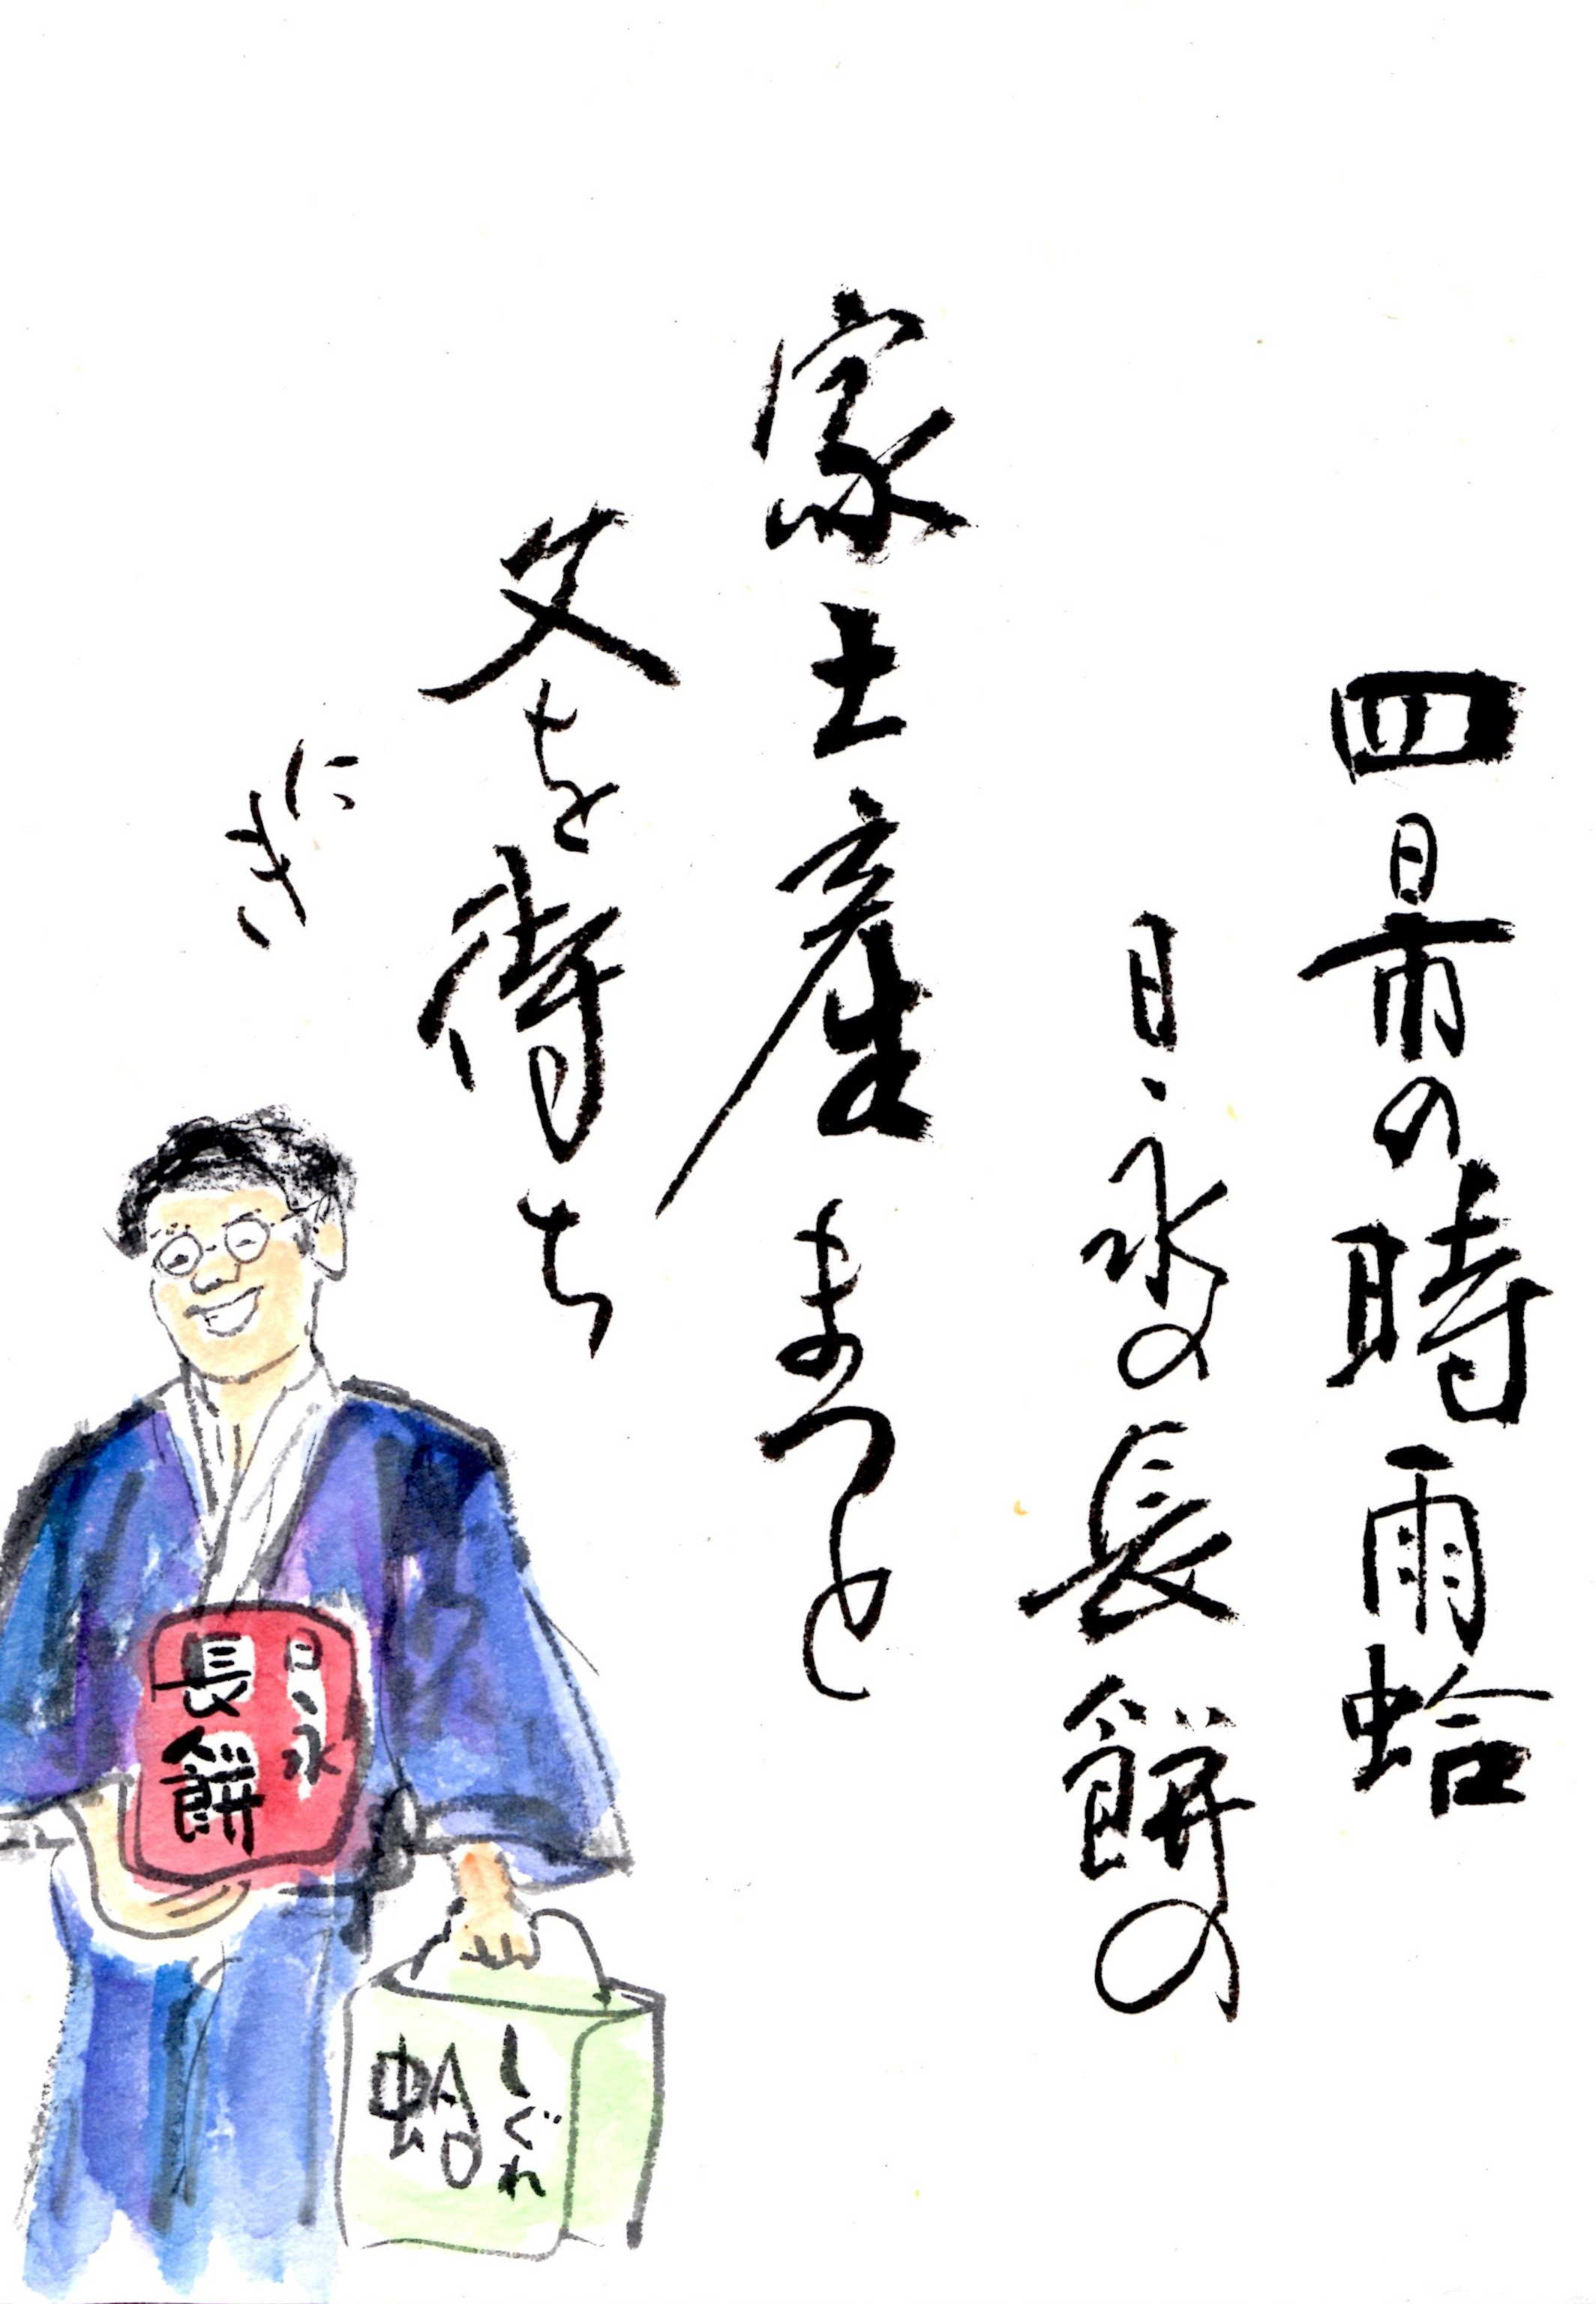 四日市の時雨蛤
日永の長餅の
家土産まつと
父を待ちにき
日永
長餅
しぐれ
蛤